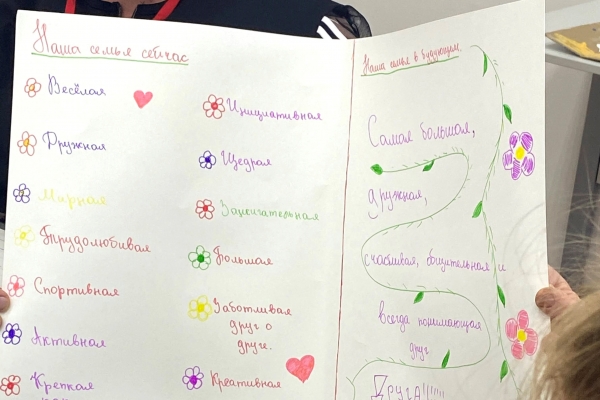 Наша семья сейчас
Весёлая
Дружная
Мирная
Трудолюбивая
Спортивная
Активная
Крепкая
Инициативная
Щедрая
Замечательная
Большая
Заботливая
друг о
друге.
Креативная
Наша семья в будущем.
Самая большая,
дружная,
счастливая, общительная и
всегда понимающая
друг
Друга!!!!!!